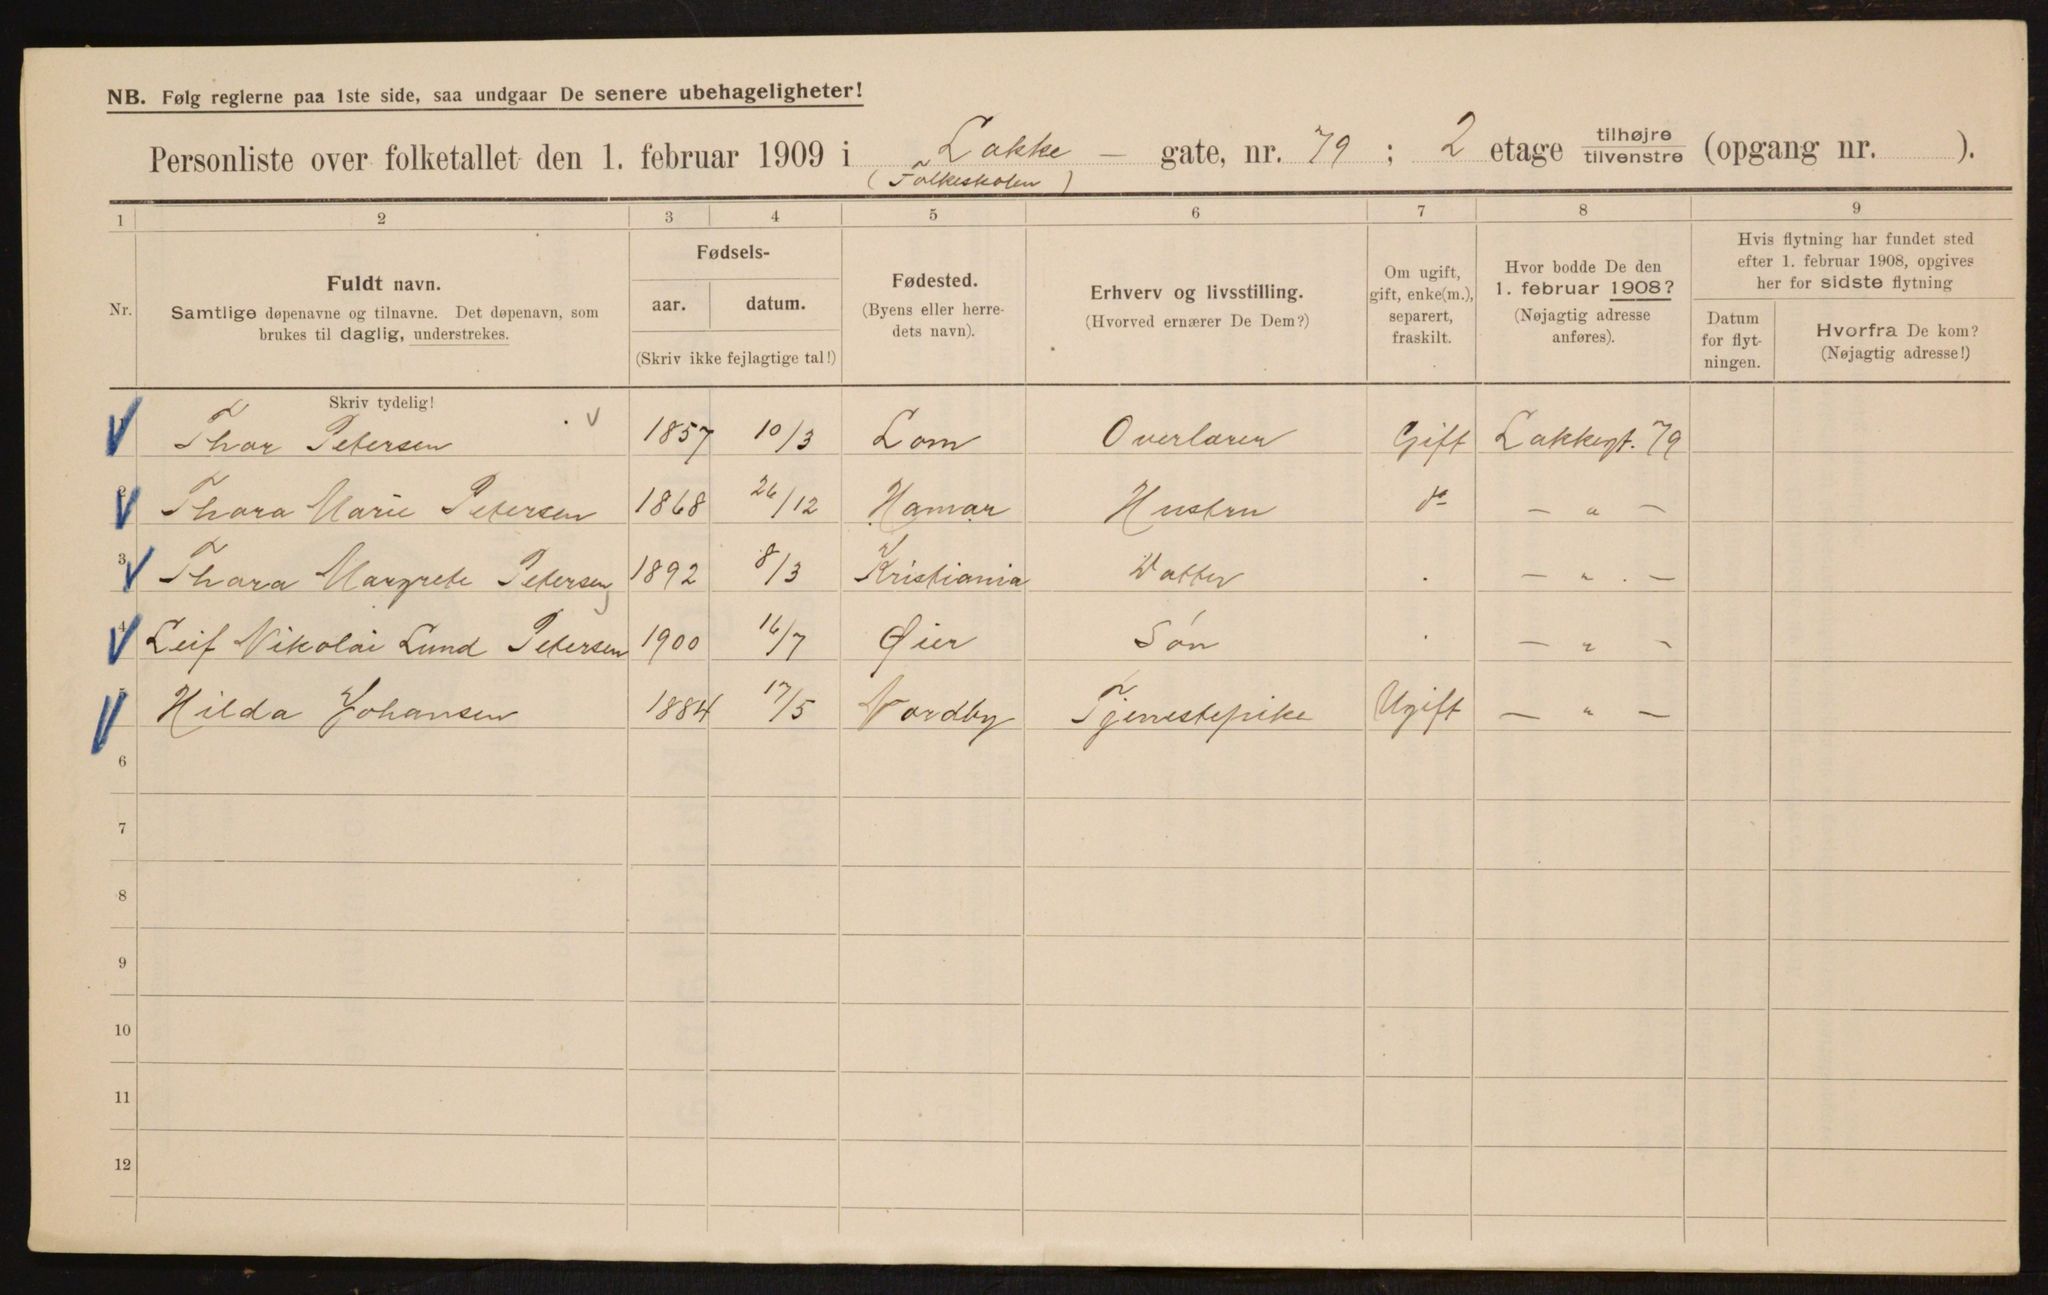 NB. Følg reglerne paa 1ste side, saa undgaar De senere ubehageligheter!
Personliste over folketallet den 1. februar 1909 i Lakke – gate, nr. 79 ; 2 etage tilhøjre/tilvenstre (opgang nr. ).
(Folkeskolen)
1 2 3 4 5 6 7 8 9
Nr.
Fuldt navn.
Samtlige døpenavne og tilnavne. Det døpenavn, som
brukes til daglig, understrekes.
Fødsels-
aar. datum.
(Skriv ikke fejlagtige tal!)
Fødested.
(Byens eller herre-
dets navn).
Erhverv og livsstilling.
(Hvorved ernærer De Dem?)
Om ugift,
gift, enke(m.),
separert,
fraskilt.
Hvor bodde De den
1. februar 1908?
(Nøjagtig adresse
anføres).
Hvis flytning har fundet sted
efter 1. februar 1908, opgives
her for sidste flytning
Datum
for flyt-
ningen.
Hvorfra De kom?
(Nøjagtig adresse!)
Skriv tydelig!
Thor Petersen 1857 10/3 Lom Overlærer Gift Lakkegt. 79
2 Thora Marie Petersen 1868 26/12 Hamar Hustru do – " –
3 Thora Margrete Petersen 1892 8/3 Kristiania Datter . – " . –
4 Leif Nikolai Lund Petersen 1900 16/7 Øier Søn . – " –
5 Hilda Johansen 1884 17/5 Nordby Tjenestepike Ugift – " –
6
7
8
9
10
11
12